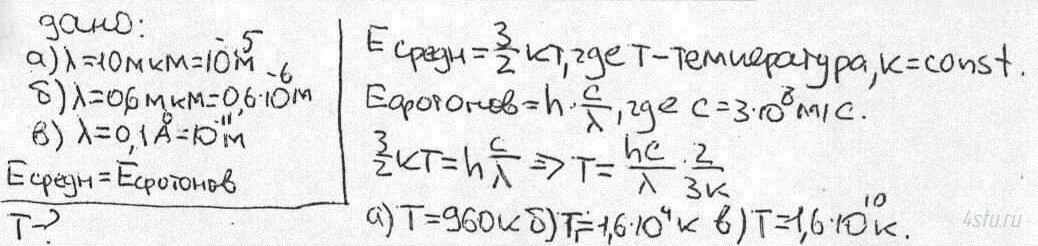 дано:
а) λ=10мкм=10⁻⁵м
б) λ=0,6мкм=0,6·10⁻⁶м
в) λ=0,1Å=10⁻¹¹м
Eсредн=Eфотонов
T-?
Eсредн=3/2 kT, где T-температура, k=const.
Eфотонов=h·c/λ, где c=3·10⁸м/с.
3/2 kT=h c/λ ⇒ T=hc/λ·2/3k
а) T=960К б) T=1,6·10⁴К в) T=1,6·10¹⁰К.
4stu.ru